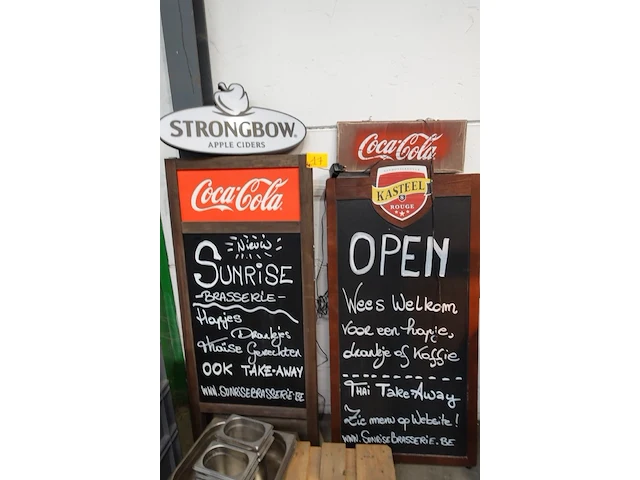 STRONGBOW.
APPLE CIDERS
Coca-Cola
Nieuw
SUNRISE
-BRASSERIE-
Hapjes
Drankjes
Thaise Gerechten
OOK TAKE-AWAY
WWW.SUNRISEBRASSERIE.BE
Coca-Cola
KASTEEL
ROUGE
OPEN
Wees Welkom
Voor een hapje,
drankje of Koffie
THAI TAKE-AWAY
Zie menu op Website!
WWW.SUNRISEBRASSERIE.BE